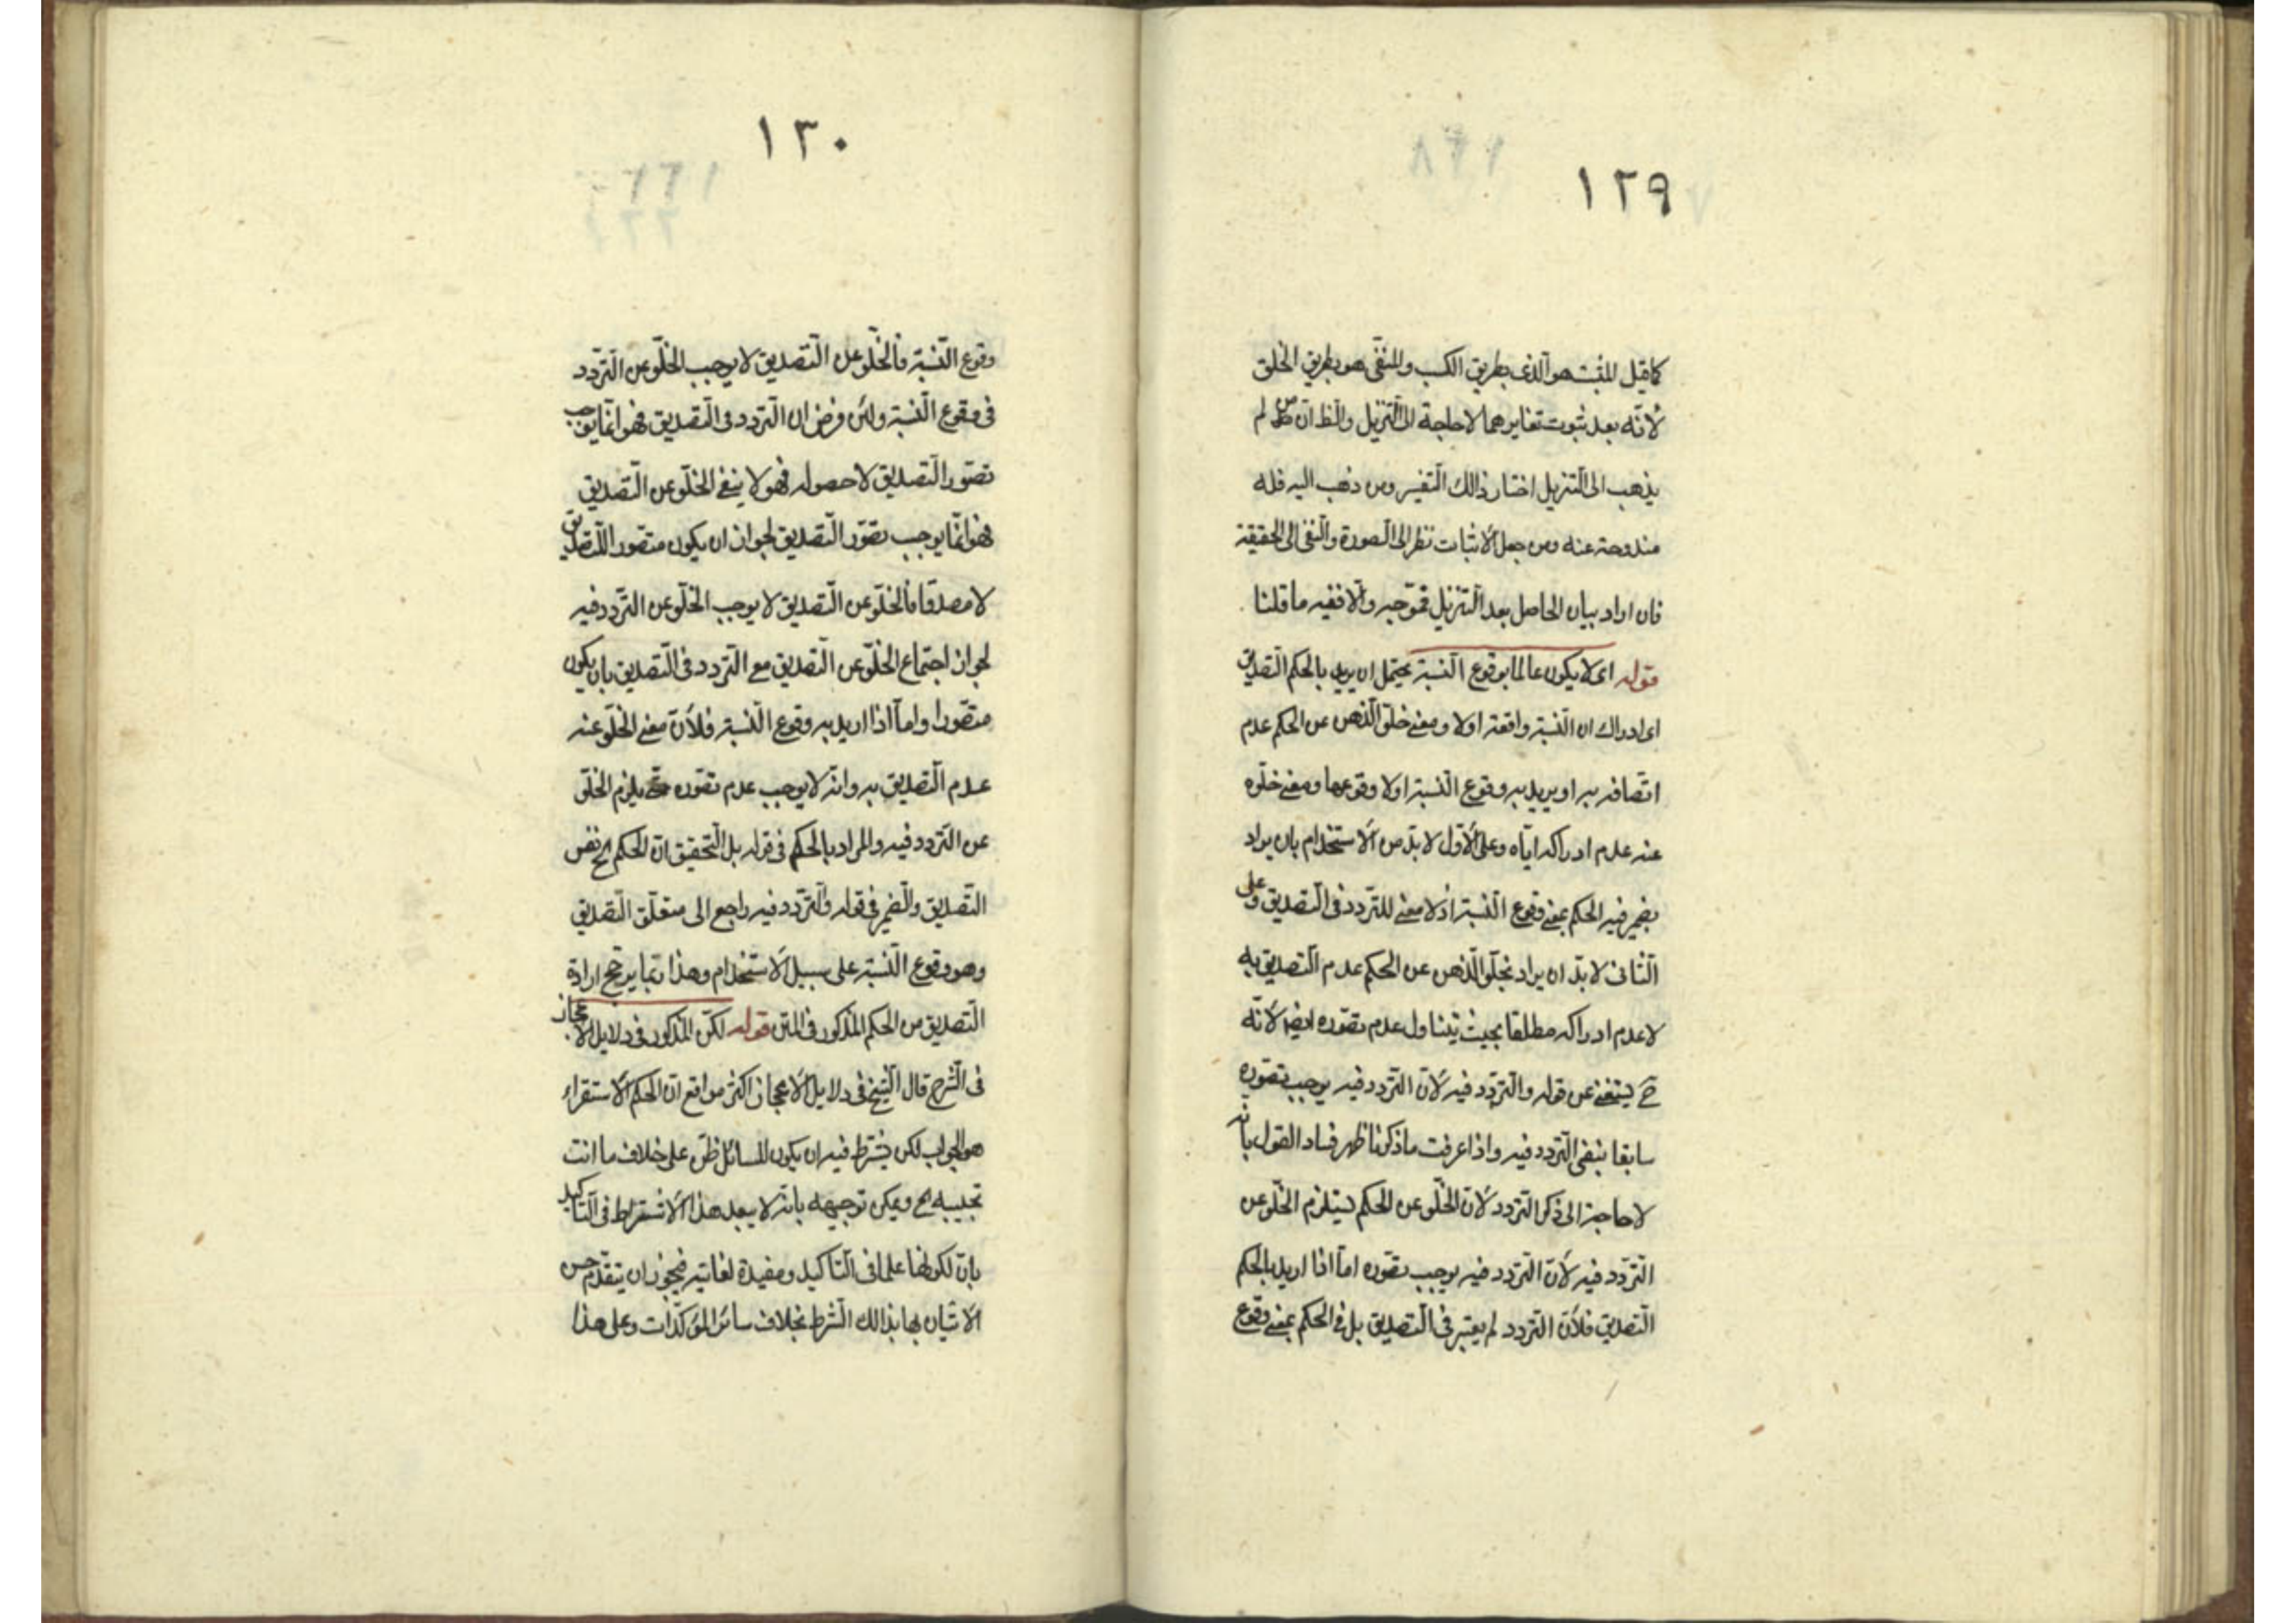 ١٢٩
كما قيل المثبت هو الذى بطريق الكسب والمنفى هو بطريق الخلق
لأنه بعد ثبوت تغايرهما لا حاجة الى التنزيل والظ ان من لم
يذهب الى التنزيل اختار ذالك التفسير ومن ذهب اليه فله
مندوحة عنه ومن جعل الأثبات نظرا الى الصورة والنفى الى الحقيقة
فان اراد بيان الحاصل بعد التنزيل فموجه والا ففيه ما قلنا
قوله اى لا يكون عالما بوقوع النسبة يحتمل ان يريد بالحكم التصديق
اى ادراك ان النسبة واقعة اولا ومعنى خلو الذهن عن الحكم عدم
اتصافه به او يريد به وقوع النسبة اولا وقوعها ومعنى خلوه
عنه عدم ادراكه اياه وعلى الأول لا بد من الأستخدام بان يراد
بضمير فيه الحكم بمعنى وقوع النسبة اذ لا معنى للتردد فى التصديق وعلى
الثانى لا بد ان يراد بخلو الذهن عن الحكم عدم التصديق به
لا عدم ادراكه مطلقا بحيث يتناول عدم تصوره ايضا لأنه
ح يستغنى عن قوله والتردد فيه لأن التردد فيه يوجب تصوره
سابقا بنفى التردد فيه واذا عرفت ما ذكرنا ظهر فساد القول بانه
لا حاجة الى ذكر التردد لأن الخلو عن الحكم يستلزم الخلو عن
التردد فيه لأن التردد فيه يوجب تصوره اما اذا اريد بالحكم
التصديق فلأن التردد لم يعتبر فى التصديق بل فى الحكم بمعنى وقوع
١٣٠
وقوع النسبة فالخلو عن التصديق لا يوجب الخلو عن التردد
فى وقوع النسبة ولئن فرض ان التردد فى التصديق فهو انما يوجب
تصور التصديق لا حصوله فهو لا ينفى الخلو عن التصديق
فهو انما يوجب تصور التصديق لجواز ان يكون متصورا للتصديق
لا مصدقا فالخلو عن التصديق لا يوجب الخلو عن التردد فيه
لجواز اجتماع الخلو عن التصديق مع التردد فى التصديق بان يكون
متصورا واما اذا اريد به وقوع النسبة فلأن معنى الخلو عنه
عدم التصديق به وانه لا يوجب عدم تصوره حتى يلزم الخلو
عن التردد فيه والمراد بالحكم فى قوله بل التحقيق ان الحكم الخ نفس
التصديق والضمير فى قوله والتردد فيه راجع الى متعلق التصديق
وهو وقوع النسبة على سبيل الأستخدام وهذا ربما يرجح ارادة
التصديق من الحكم المذكور فى المتن قوله لكن المذكور فى دلايل الأعجاز
فى الشرح قال الشيخ فى دلايل الأعجاز اكثر مواقع ان الحكم الأستقراء
هو الجواب لكن يشترط فيه ان يكون للسائل ظن على خلاف ما انت
تجيبه به ويمكن توجيهه بانه لا يبعد هذا الأشتراط فى التأكيد
بان لكونها علما فى التأكيد ومفيدة لغايته فيجوز ان يتقدم حسن
الأتيان بها بذالك الشرط بخلاف سائر المؤكدات وعلى هذا